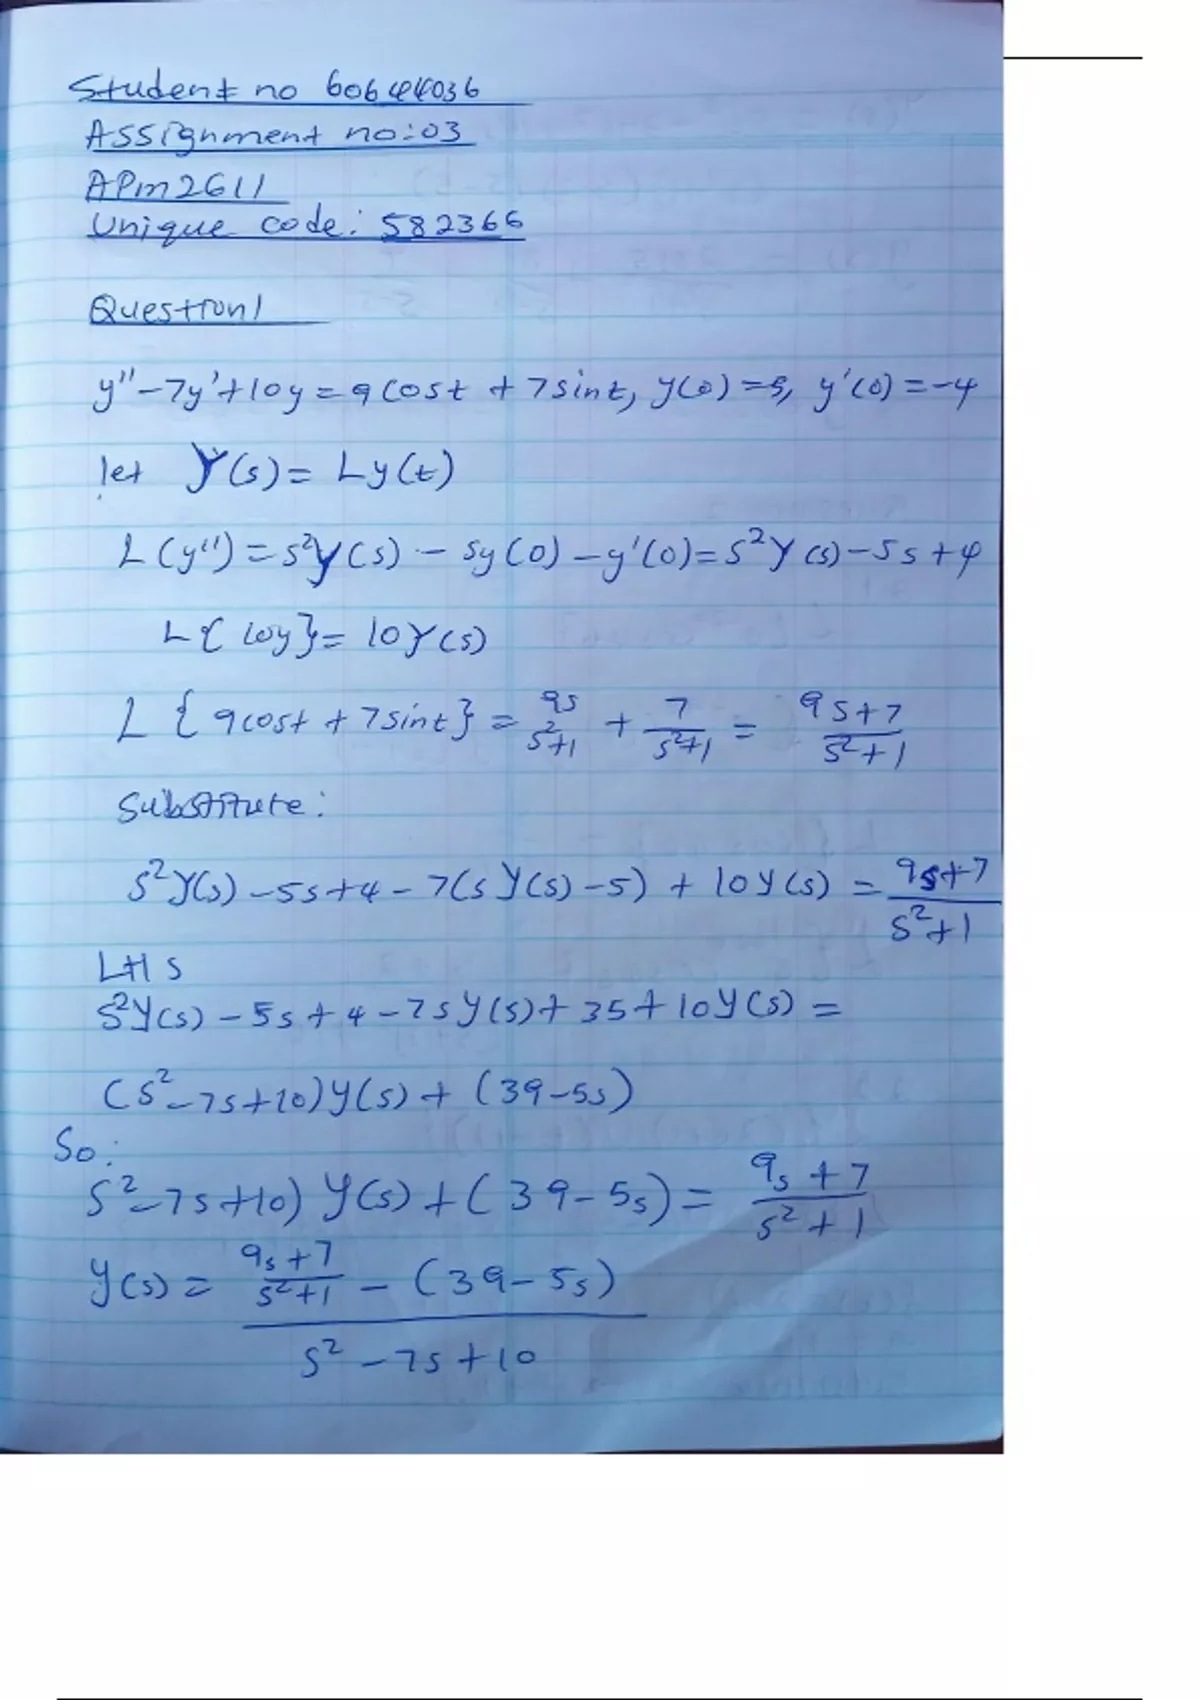 Student no 60644036
Assignment no:03
APM2611
Unique code: 582366
Question 1
y'' - 7y' + 10y = 9cost + 7sint, y(0) = 5, y'(0) = -4
let Y(s) = Ly(t)
L(y'') = s²Y(s) - sy(0) - y'(0) = s²Y(s) - 5s + 4
L{10y} = 10Y(s)
L{9cost + 7sint} = 9s/s²+1 + 7/s²+1 = 9s+7/s²+1
Substitute:
s²Y(s) - 5s + 4 - 7(sY(s) - 5) + 10Y(s) = 9s+7/s²+1
LHS
s²Y(s) - 5s + 4 - 7sY(s) + 35 + 10Y(s) =
(s² - 7s + 10)Y(s) + (39 - 5s)
So:
s² - 7s + 10) Y(s) + (39 - 5s) = 9s + 7/s² + 1
Y(s) = 9s+7/s²+1 - (39 - 5s)
s² - 7s + 10